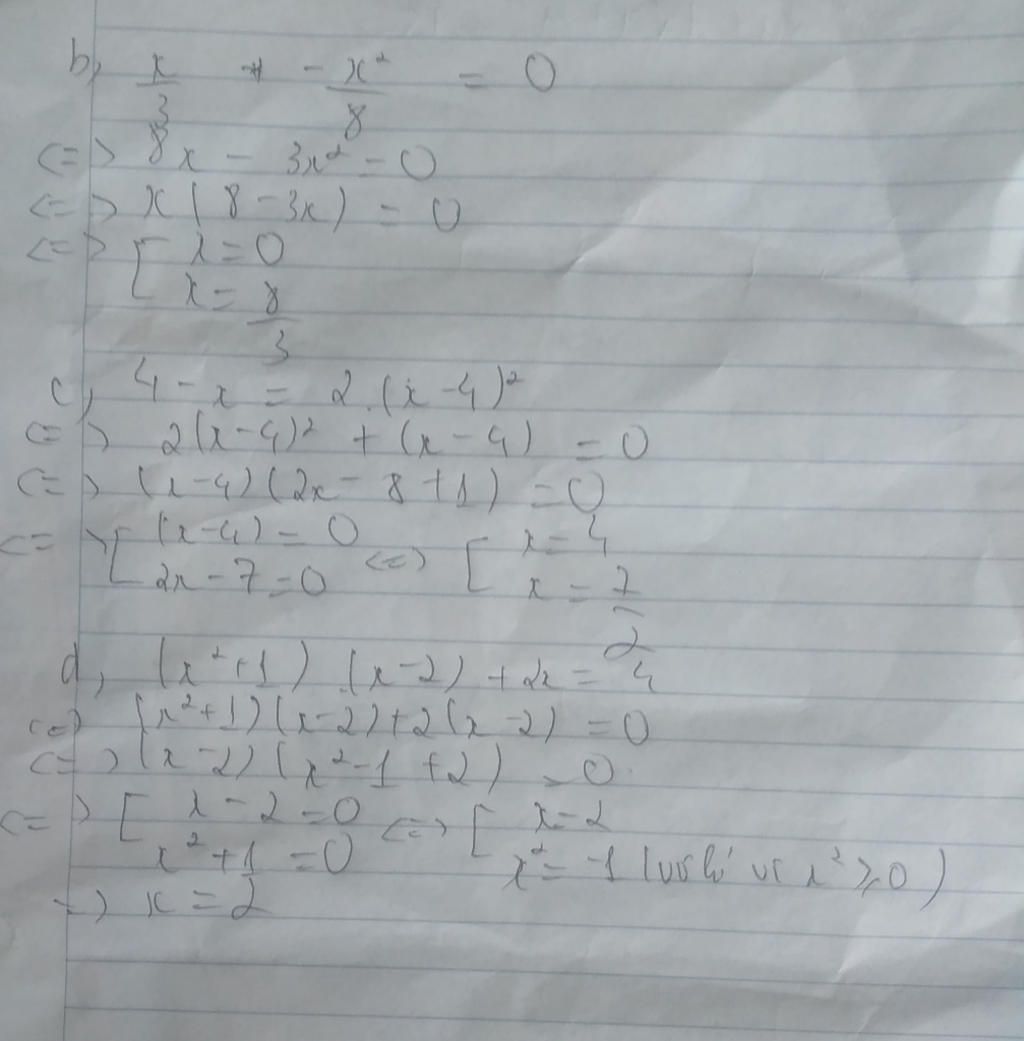 b, x/3 + -x²/8 = 0
<=> 8x - 3x² = 0
<=> x(8 - 3x) = 0
<=> [ x = 0
x = 8/3
c, 4 - x = 2.(x - 4)²
<=> 2(x - 4)² + (x - 4) = 0
<=> (x - 4)(2x - 8 + 1) = 0
<=> [ (x - 4) = 0 <=> [ x = 4
2x - 7 = 0 x = 7/2
d, (x² + 1).(x - 2) + 2x = 4
<=> (x² + 1)(x - 2) + 2(x - 2) = 0
<=> (x - 2)(x² - 1 + 2) = 0
<=> [ x - 2 = 0 <=> [ x = 2
x² + 1 = 0 x² = -1 (vô lí vì x² ≥ 0)
=> x = 2